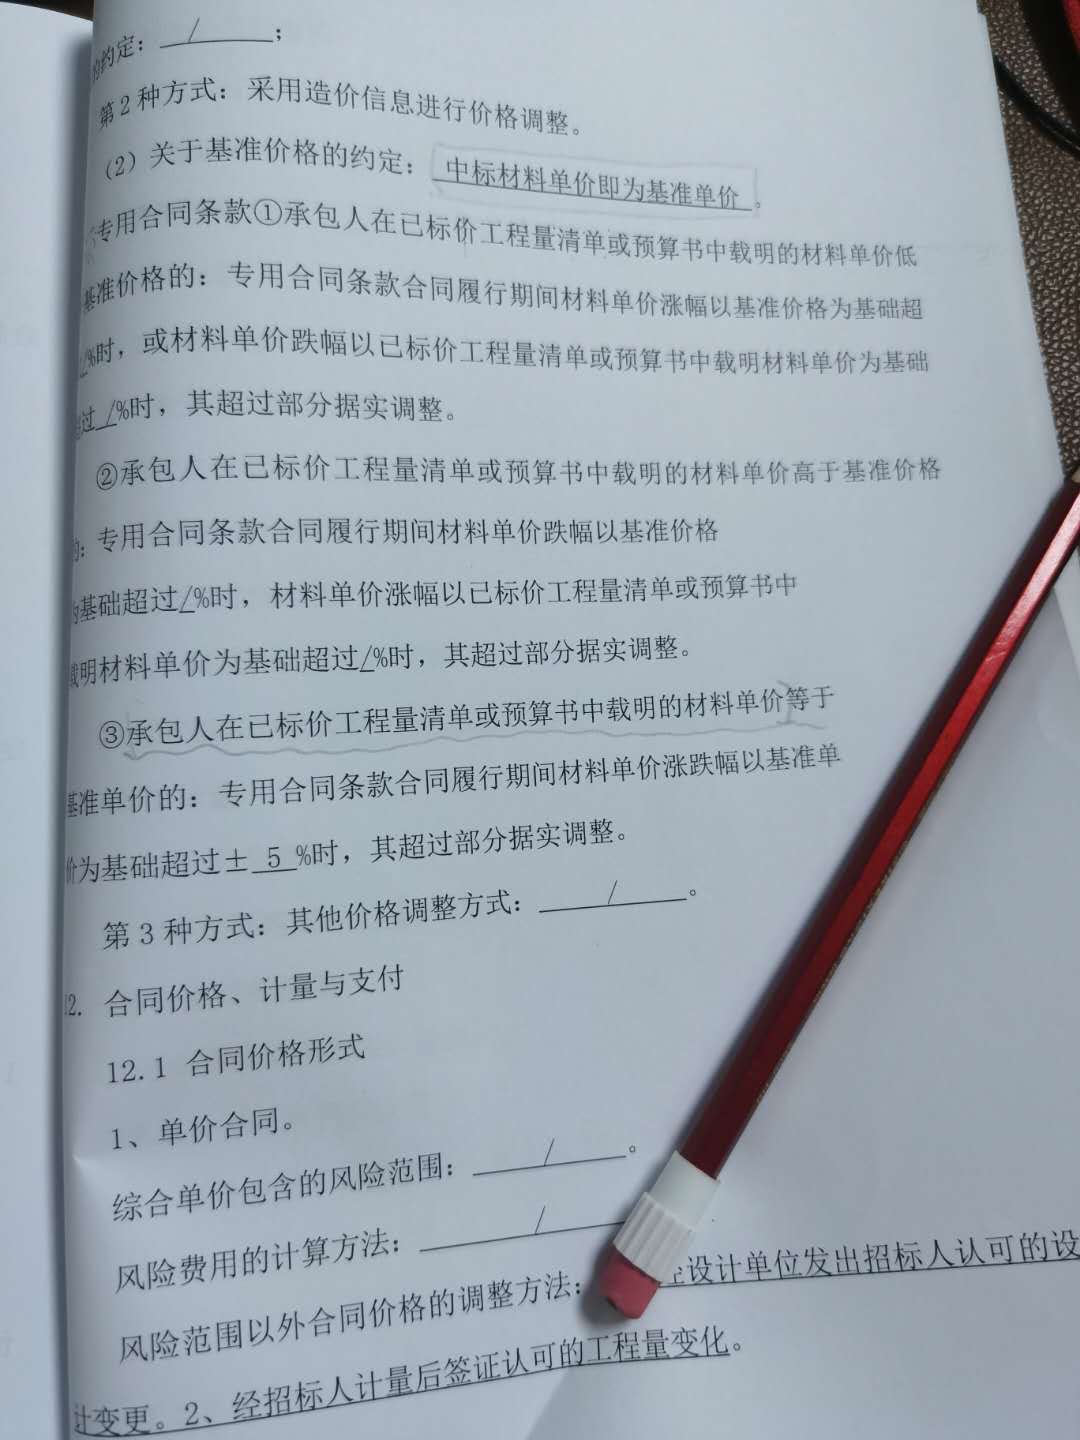 的约定：/；
第2种方式：采用造价信息进行价格调整。
（2）关于基准价格的约定：中标材料单价即为基准单价。
专用合同条款①承包人在已标价工程量清单或预算书中载明的材料单价低
基准价格的：专用合同条款合同履行期间材料单价涨幅以基准价格为基础超
/%时，或材料单价跌幅以已标价工程量清单或预算书中载明材料单价为基础
过/%时，其超过部分据实调整。
②承包人在已标价工程量清单或预算书中载明的材料单价高于基准价格
的：专用合同条款合同履行期间材料单价跌幅以基准价格
为基础超过/%时，材料单价涨幅以已标价工程量清单或预算书中
载明材料单价为基础超过/%时，其超过部分据实调整。
③承包人在已标价工程量清单或预算书中载明的材料单价等于
基准单价的：专用合同条款合同履行期间材料单价涨跌幅以基准单
价为基础超过±5%时，其超过部分据实调整。
第3种方式：其他价格调整方式：/。
2. 合同价格、计量与支付
12.1 合同价格形式
1、单价合同。
综合单价包含的风险范围：/。
风险费用的计算方法：/
风险范围以外合同价格的调整方法：设计单位发出招标人认可的设
计变更。2、经招标人计量后签证认可的工程量变化。